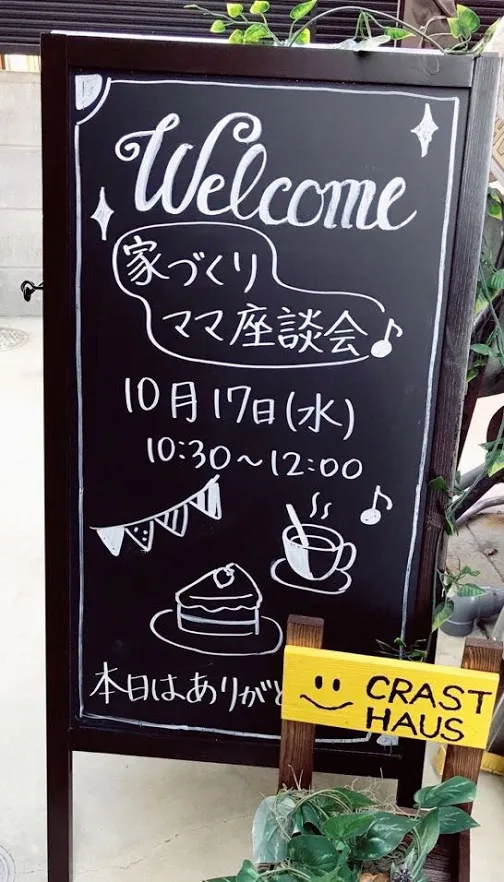 Welcome
家づくり
ママ座談会
10月17日(水)
10:30~12:00
本日はありがと
CRAST
HAUS